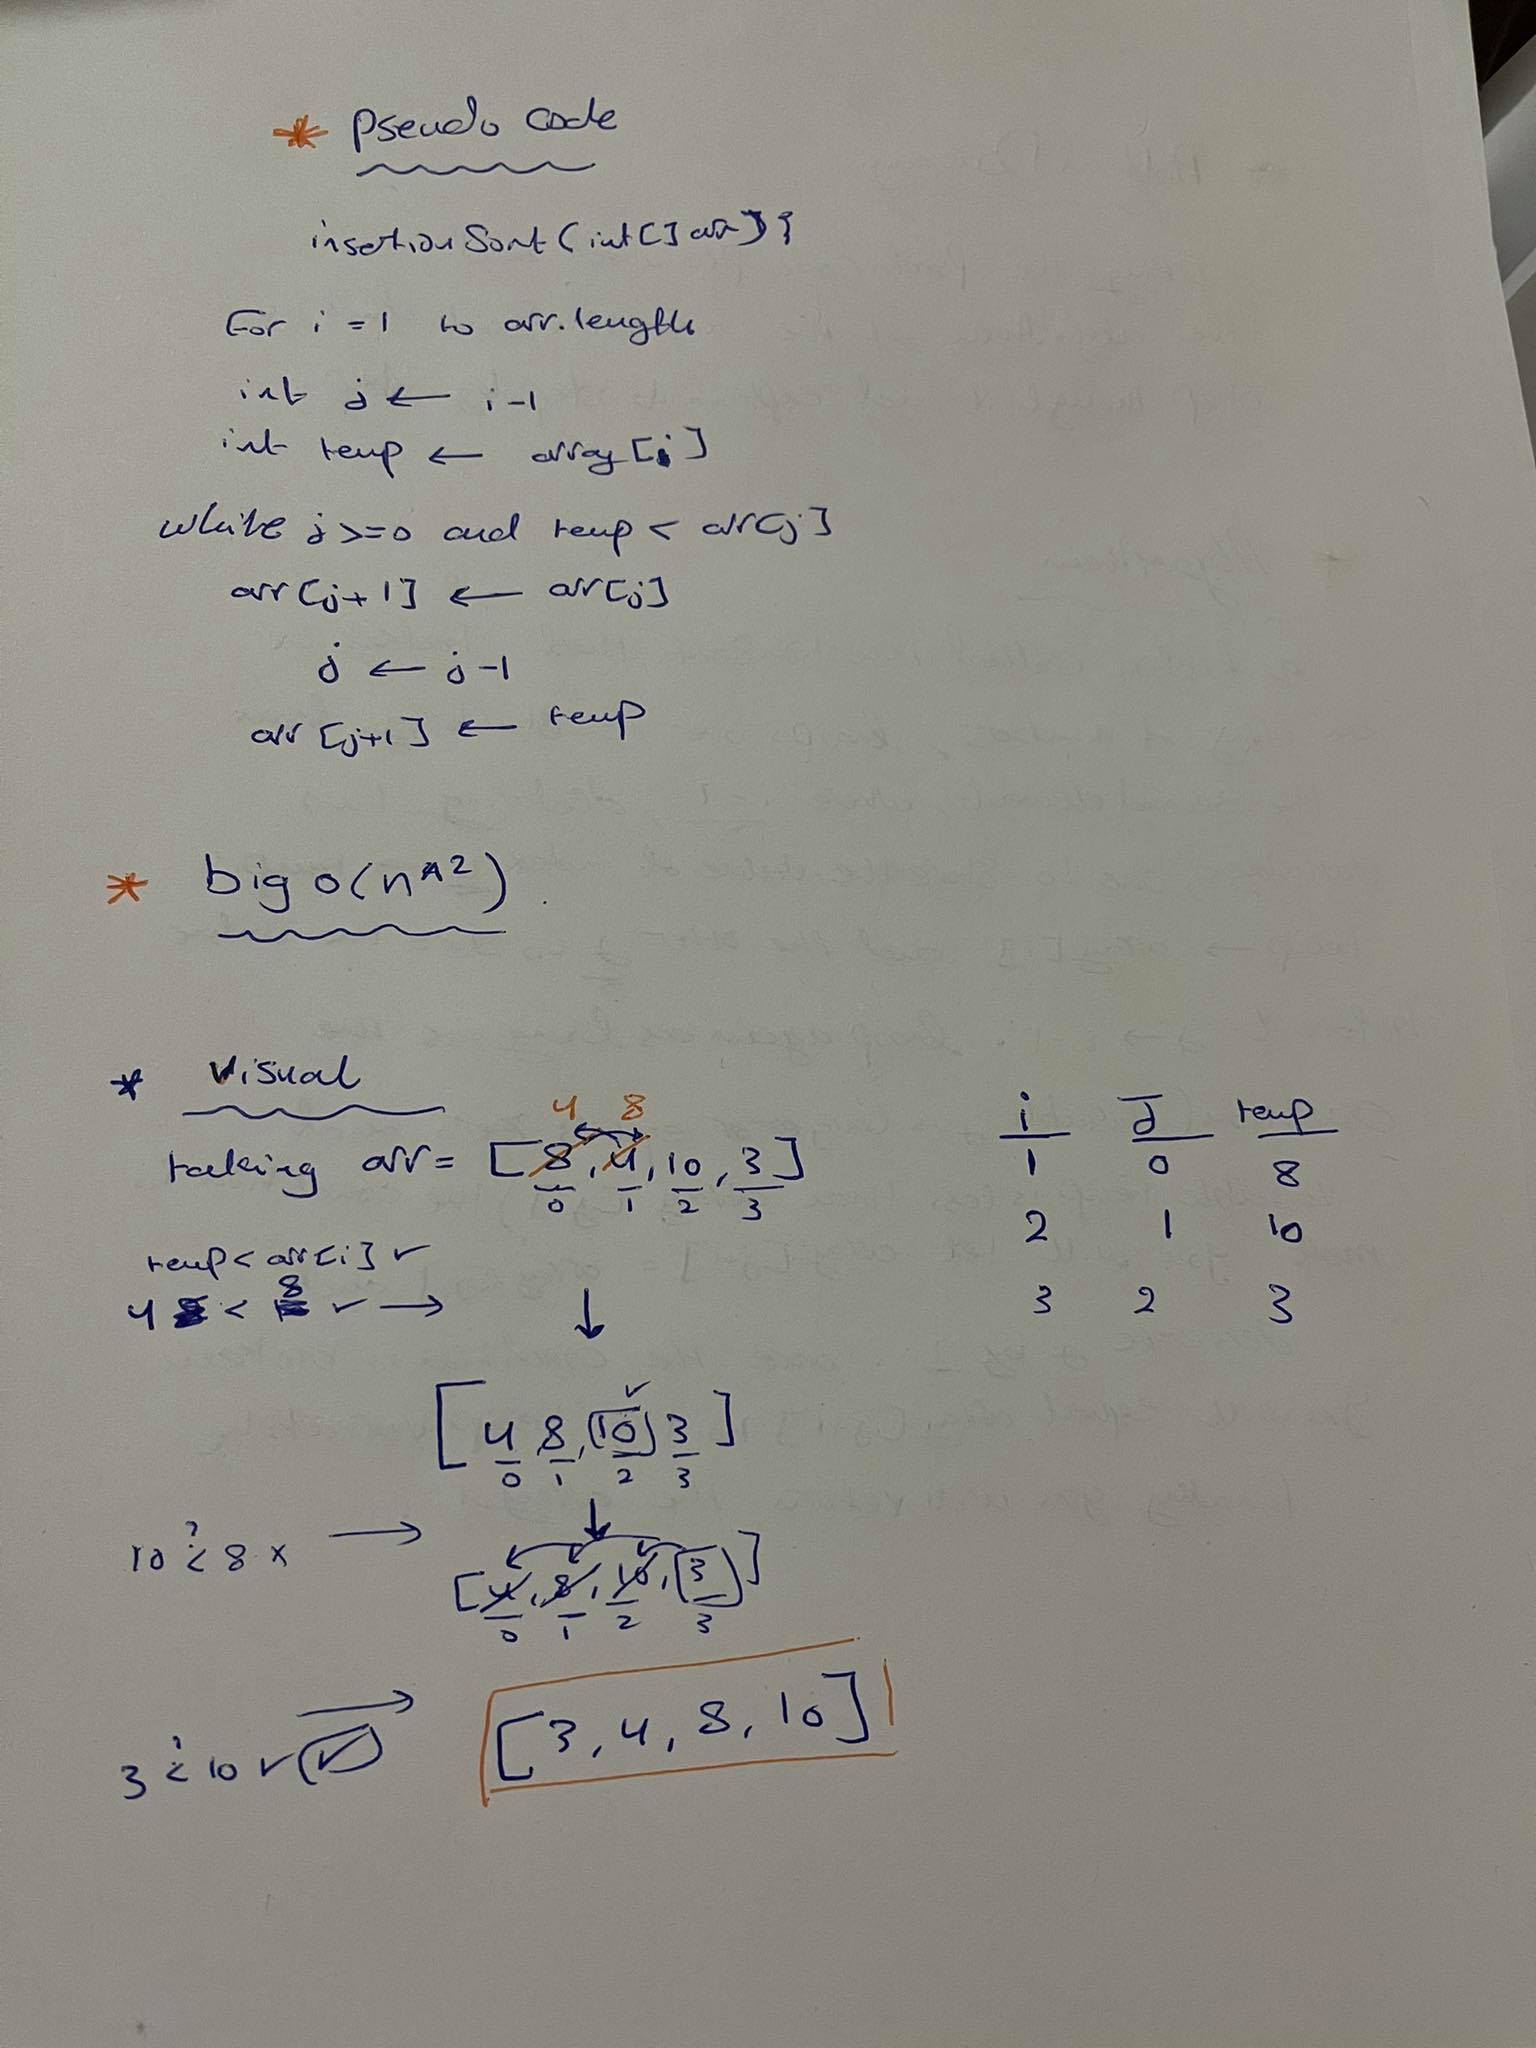 * Pseudo code
insertionSort(int[] arr){
For i = 1 to arr.length
int j ← i-1
int temp ← array[i]
while j >=0 and temp < arr[j]
arr[j+1] ← arr[j]
j ← j-1
arr[j+1] ← temp
* big o(n^2)
* Visual
4 8
taking arr = [8, 4, 10, 3]
0 1 2 3
i j temp
1 0 8
2 1 10
3 2 3
temp < arr[i] ✓
4 < 8 ✓ →
↓
[4 8, 10 3] ✓
0 1 2 3
↓
10 <? 8 x →
[4, 8, 10, 3]
0 1 2 3
3 <? 10 ✓ ✓ →
[3, 4, 8, 10]